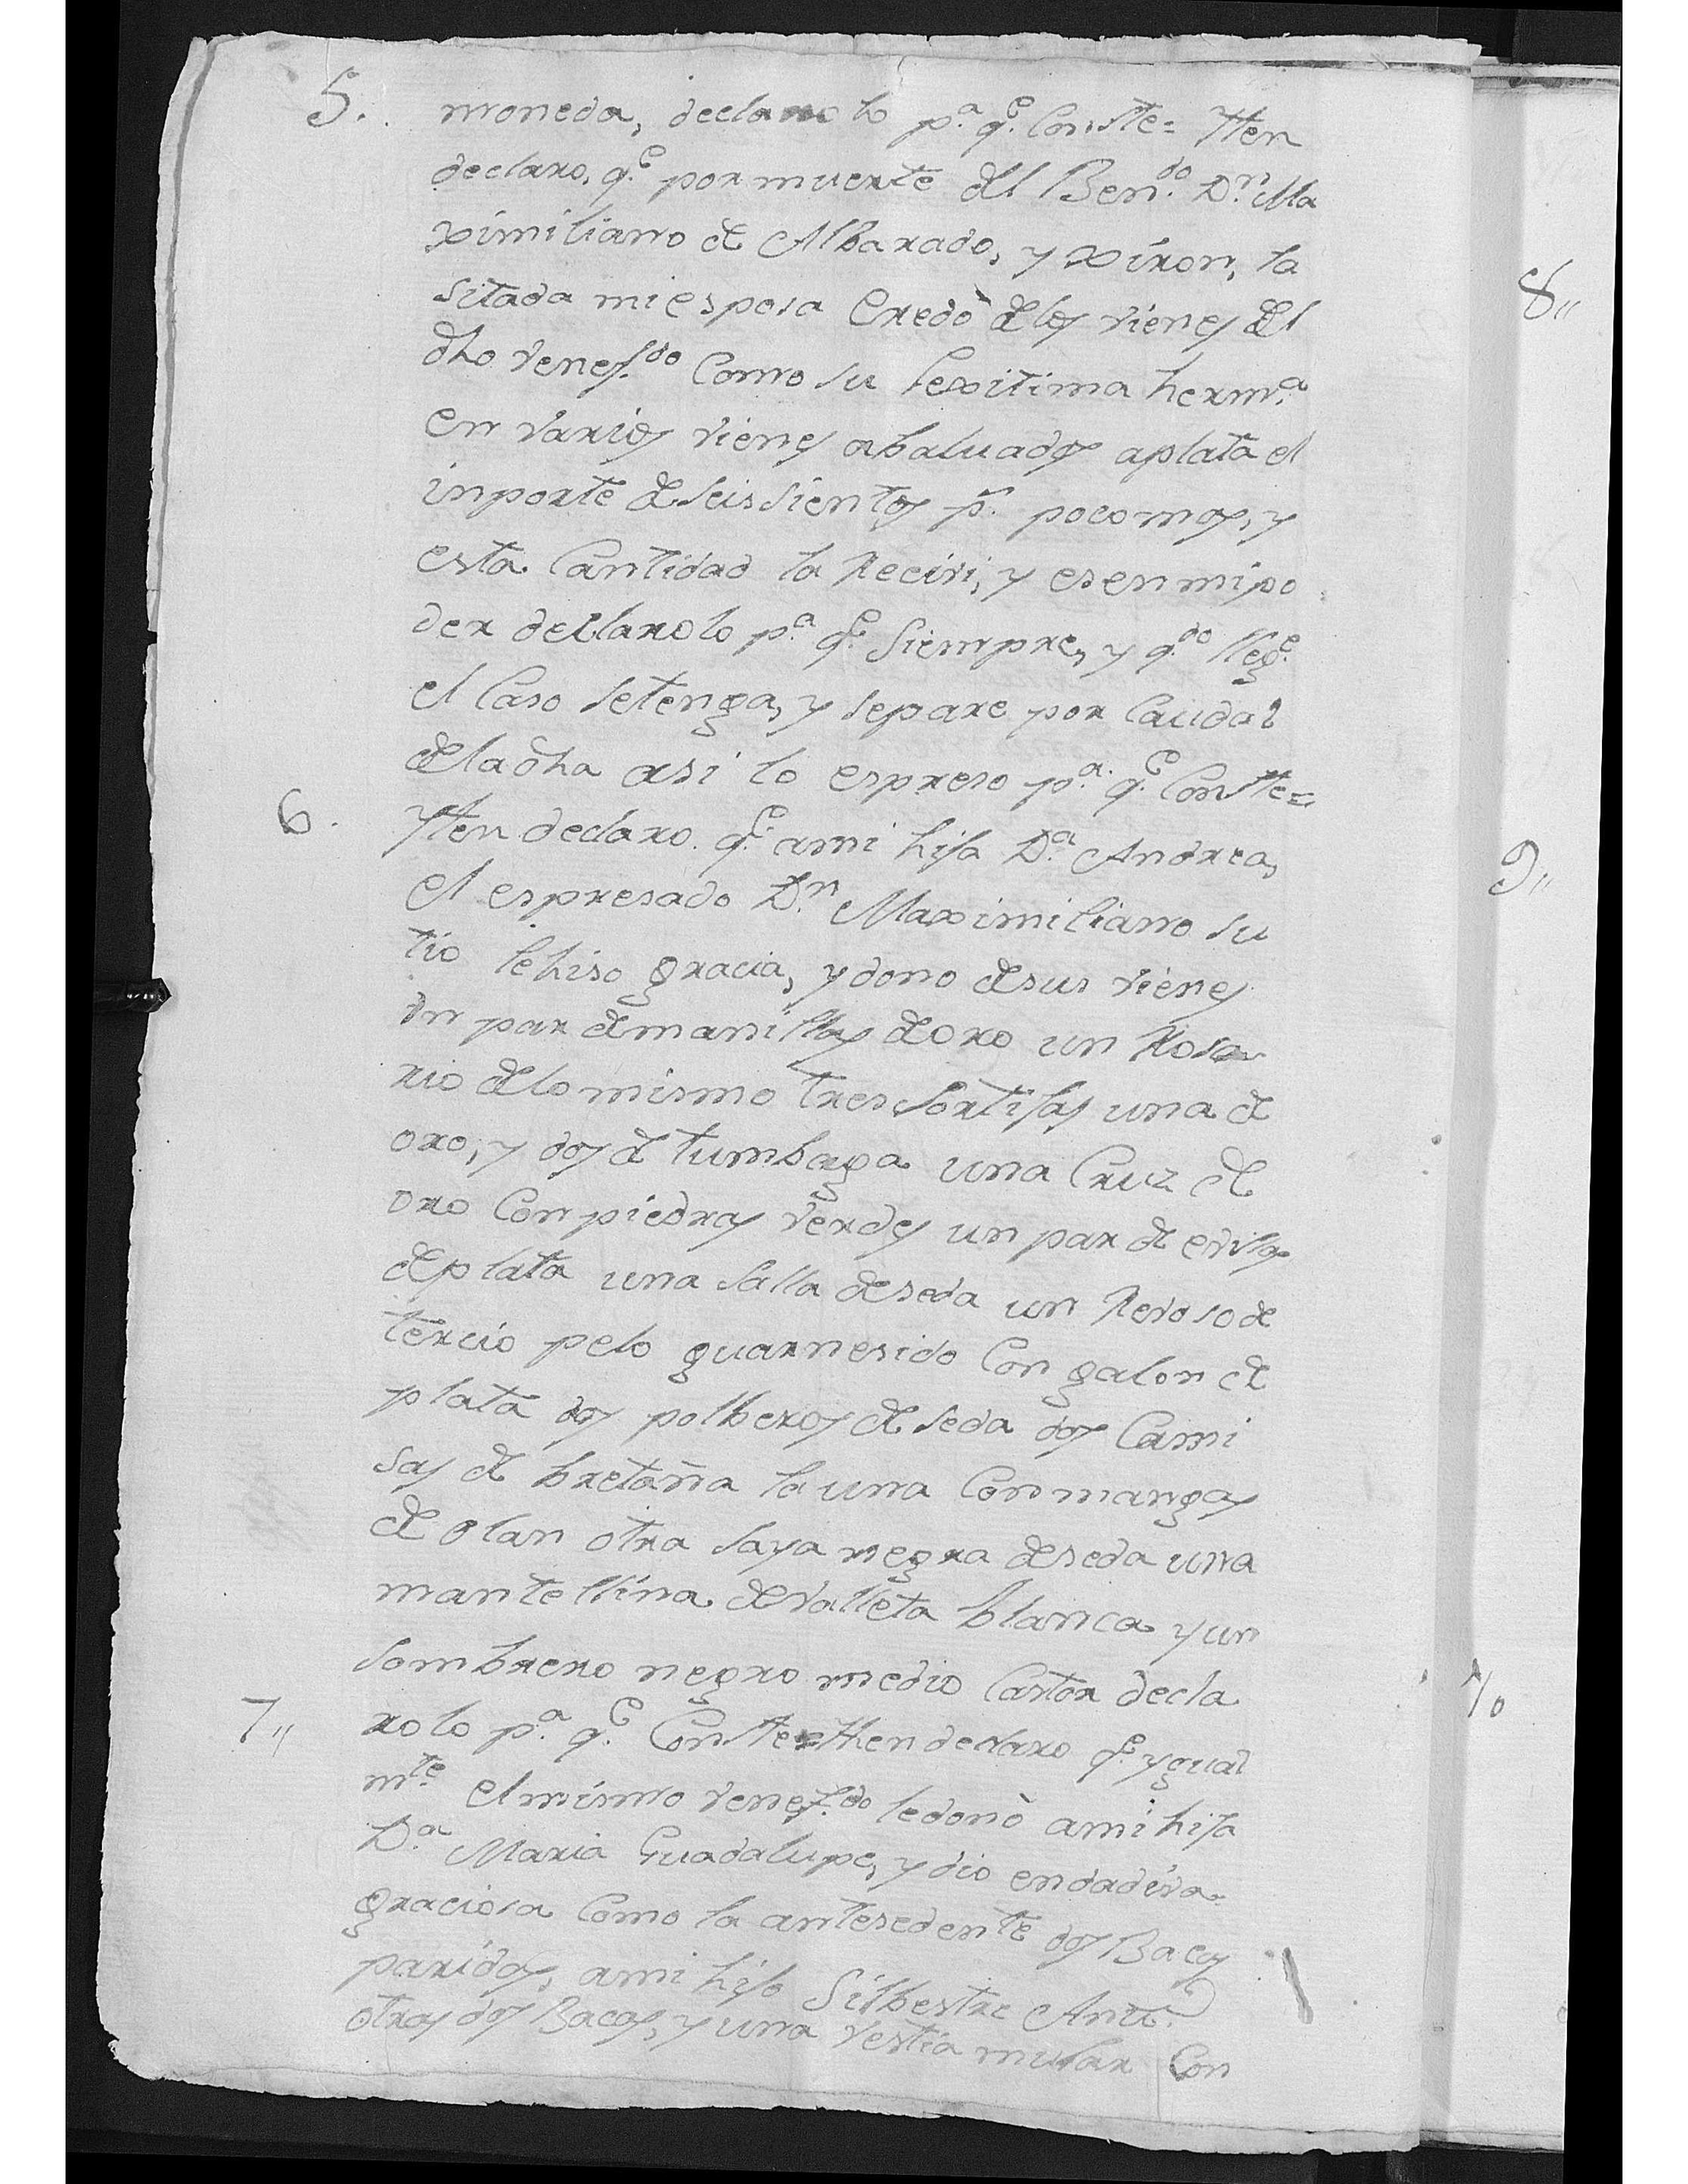 5. moneda, declarolo p.a q.e Conste= Yten
declaro, q.e por muerte del Ben.do D.n Ma
ximiliano de Albarado, y xiron, la
sitada mi esposa Eredò de los vienes del
dho venef.do Como su lexitima herm.a
en varios vienes abaluados aplata el
inporte de seissientos p.s poco mas, y
esta Cantidad la Recivi, y es en mi po
der declarolo p.a q.e Siempre, y q.do lleg.e
el Caso setenga, y separe por Caudal
de la dha asi lo espreso p.a q.e Conste=
6. Yten declaro. q.e ami hija D.a Andrea,
el espresado D.n Maximiliano su
tio le hiso gracia, y dono de sus vienes
un par de manillas de oro un Rosa
rio de lo mismo tres sortijas una de
oro, y dos de tumbaga una Cruz de
oro Con piedras verdes un par de evillas
de plata una salla de seda un Revoso de
tercio pelo guarnesido Con galon de
plata dos polleros de seda dos Cami
sas de bretaña la una Con mangas
de olan otra saya negra de seda una
mantellina de valleta blanca y un
sombrero negro medio Castor decla
7,, rolo p.a q.e Conste= Yten declaro q.e ygual
m.te el mismo venef.do ledonò ami hija
D.a Maria Guadalupe, y dio en dadiva
graciosa Como la antesedente dos Bacas
paridas, ami hijo Silbestre Ant.o
otras dos Bacas, y una vestia mular Con
8,,
9,,
10